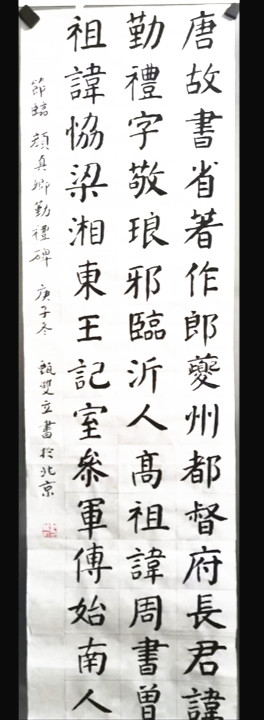 唐故書省著作郎夔州都督府長君諱
勤禮字敬琅邪臨沂人高祖諱周書曾
祖諱協梁湘東王記室叅軍傳始南人
節臨顏真卿勤禮碑 庚子冬 甄雙立書於北京